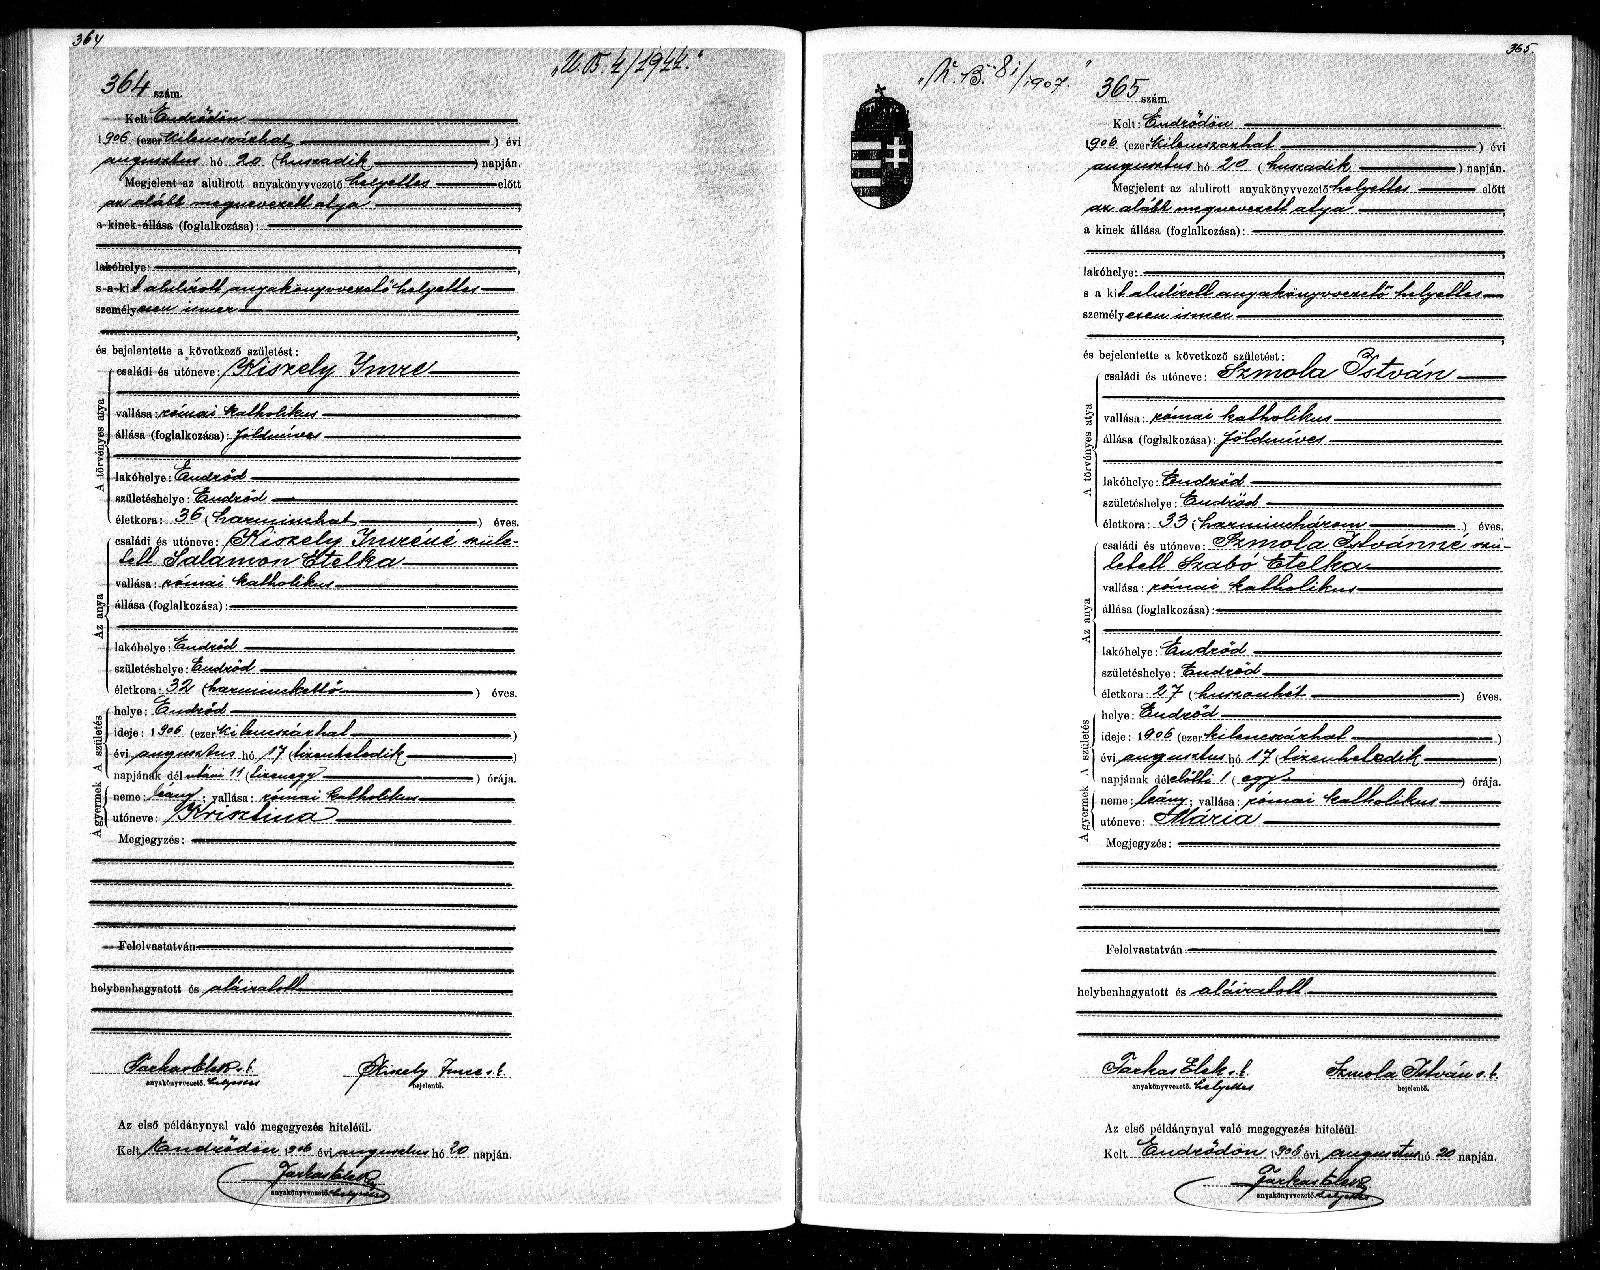 364
364 szám.
„U.B. 4/1944."
Kelt: Endrődön
1906 (ezer kilenczszázhat) évi
augusztus hó 20 (huszadik) napján.
Megjelent az alulirott anyakönyvvezető helyettes előtt
az alább megnevezett atya
a kinek állása (foglalkozása):
lakóhelye:
s a kit alulírott anyakönyvvezető helyettes
személyesen ismer
és bejelentette a következő születést:
A törvényes atya
családi és utóneve: Kiszely Imre
vallása: római katholikus
állása (foglalkozása): földmíves
lakóhelye: Endrőd
születéshelye: Endrőd
életkora: 36 (harminczhat) éves.
Az anya
családi és utóneve: Kiszely Imréné szüle-
tett Salamon Etelka
vallása: római katholikus
állása (foglalkozása):
lakóhelye: Endrőd
születéshelye: Endrőd
életkora: 32 (harminczkettő) éves.
A gyermek A születés
helye: Endrőd
ideje: 1906 (ezer kilenczszázhat)
évi augusztus hó 17 (tizenhetedik)
napjának délutáni 11 (tizenegy) órája.
neme: leány; vallása: római katholikus
utóneve: Krisztina
Megjegyzés:
Felolvastatván
helybenhagyatott és aláiratott
Farkas Elek s.k. Kiszely Imre s.k.
anyakönyvvezető. helyettes bejelentő.
Az első példánynyal való megegyezés hiteléül.
Kelt Endrődön 1906 évi augusztus hó 20 napján.
Farkas Elek
anyakönyvvezető. helyettes
365.
365 szám.
Kelt: Endrődön
1906 (ezer kilenczszázhat) évi
augusztus hó 20 (huszadik) napján.
Megjelent az alulirott anyakönyvvezető helyettes előtt
az alább megnevezett atya
a kinek állása (foglalkozása):
lakóhelye:
s a kit alulírott anyakönyvvezető helyettes
személyesen ismer
és bejelentette a következő születést:
A törvényes atya
családi és utóneve: Szmola István
vallása: római katholikus
állása (foglalkozása): földmíves
lakóhelye: Endrőd
születéshelye: Endrőd
életkora: 33 (harminchárom) éves.
Az anya
családi és utóneve: Szmola Istvánné szü-
letett Szabó Etelka
vallása: római katholikus
állása (foglalkozása):
lakóhelye: Endrőd
születéshelye: Endrőd
életkora: 27 (huszonhét) éves.
A gyermek A születés
helye: Endrőd
ideje: 1906 (ezer kilenczszázhat)
évi augusztus hó 17 (tizenhetedik)
napjának délelőtti 1 (egy) órája.
neme: leány; vallása: római katholikus
utóneve: Mária
Megjegyzés:
Felolvastatván
helybenhagyatott és aláiratott
Farkas Elek s.k. Szmola István s.k.
anyakönyvvezető. helyettes bejelentő.
Az első példánynyal való megegyezés hiteléül
Kelt Endrődön 1906 évi augusztus hó 20 napján.
Farkas Elek
anyakönyvvezető. helyettes